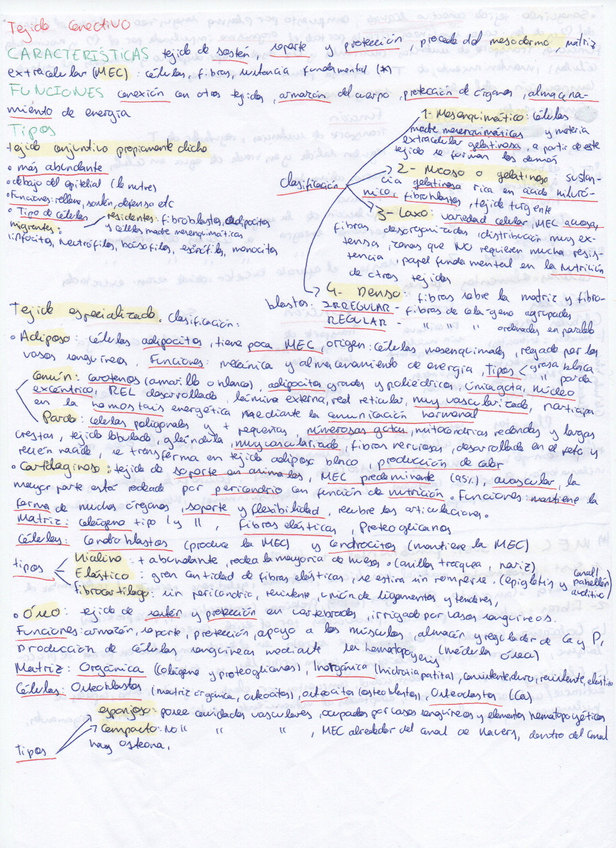 Tejido Conectivo
CARACTERÍSTICAS tejido de sostén, soporte y protección, procede del mesodermo, matriz
extracelular (MEC): células, fibras, sustancia fundamental (*)
FUNCIONES conexión con otros tejidos, armazón del cuerpo, protección de órganos, almacena-
miento de energía
Tipos
tejido conjuntivo propiamente dicho
• más abundante
• debajo del epitelial (lo nutre)
• Funciones: relleno, sostén, defensa etc
• Tipo de células residentes: fibroblastos, adipocitos
y células madre mesenquimáticas
migrantes:
linfocitos, neutrófilos, basófilos, monocitos
Clasificación
1- Mesenquimático: células
madre mesenquimáticas y materia
extracelular gelatinosa, a partir de este
tejido se forman los demás
2- Mucoso o gelatinoso sustan-
cia gelatinosa rica en ácido hialuró-
nico, fibroblastos, tejido turgente
3- Laxo: variedad celular, MEC acuosa,
fibras desorganizadas, distribución muy ex-
tensa, zonas que NO requieren mucha resis-
tencia, papel fundamental en la nutrición
de otros tejidos
4- Denso: fibras sobre la matriz y fibro-
blastos: IRREGULAR - fibras de colágeno agrupadas
REGULAR - " " " ordenadas en paralelo
Tejido especializado. Clasificación:
• Adiposo: células adipocitos, tiene poca MEC, origen: células mesenquimales, regado por los
vasos sanguíneos. Funciones: mecánica y almacenamiento de energía, Tipos grasa blanca
parda
Común: carotenos (amarillo o blanco), adipocitos grandes y poliédricos, única gota, núcleo
excéntrico, REL desarrollado, lámina externa, red reticular, muy vascularizado, participa
en la homeostasis energética mediante la comunicación hormonal
Pardo: células poligonales y + pequeñas, numerosas gotas, mitocondrias redondas y largas
crestas, tejido lobulado, glándula, muy vascularizado, fibras nerviosas, desarrollado en el feto y
recién nacido, se transforma en tejido adiposo blanco, producción de calor
• Cartilaginoso: tejido de soporte en animales, MEC predominante (95%), avascular, la
mayor parte está rodeado por pericondrio con función de nutrición. Funciones: mantiene la
forma de muchos órganos, soporte y flexibilidad, recubre las articulaciones.
Matriz: colágeno tipo I y II, Fibras elásticas, Proteoglicanos
Células: Condroblastos (produce la MEC) y condrocitos (mantiene la MEC)
tipos
Hialino: + abundante, rodea la mayoría de huesos. (anillos traquea, nariz)
Elástico: gran cantidad de fibras elásticas, se estira sin romperse. (epiglotis y canal/pabellón
auditivo)
Fibrocartílago: sin pericondrio, resistente, unión de ligamentos y tendones,
• Óseo: tejido de sostén y protección en vertebrados, irrigado por vasos sanguíneos.
Funciones: armazón, soporte, protección, apoyo a los músculos, almacén y regulador de Ca y P.
producción de células sanguíneas mediante la hematopoyesis (médula ósea)
Matriz: Orgánica (colágeno y proteoglicanos) Inorgánica (hidroxiapatita), consistente, duro, resistente, elástico
Células: Osteoblastos (matriz orgánica, osteocitos), osteocito (osteoblastos), Osteoclastos (Ca)
tipos
esponjoso: posee cavidades vasculares, ocupadas por vasos sanguíneos y elementos hematopoyéticos
Compacto: No " " " ", MEC alrededor del canal de Havers, dentro del canal
hay osteona.